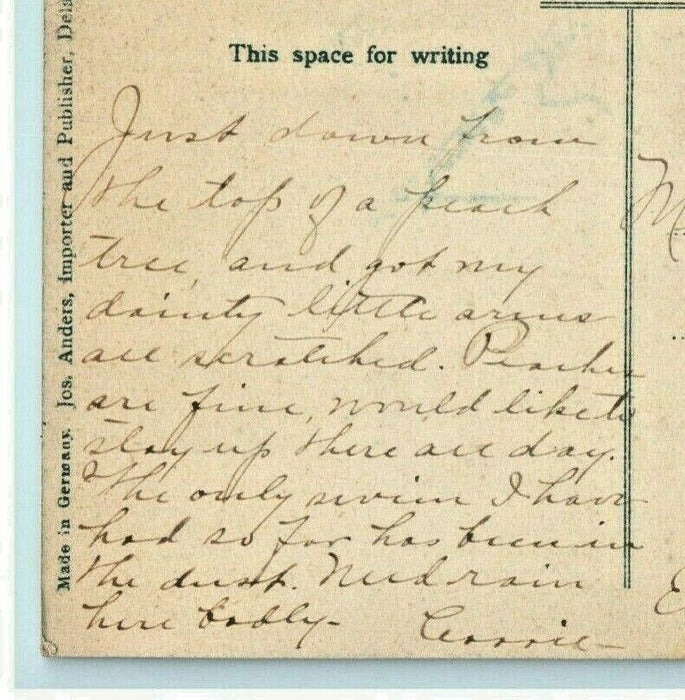 This space for writing
Just down from
the top of a peach
tree, and got my
dainty little arms
all scratched. Peaches
are fine, would like to
stay up there all day.
The only swim I have
had so far has been in
the dust. Need rain
here badly-
Carrie-
Made in Germany. Jos. Anders, Importer and Publisher,